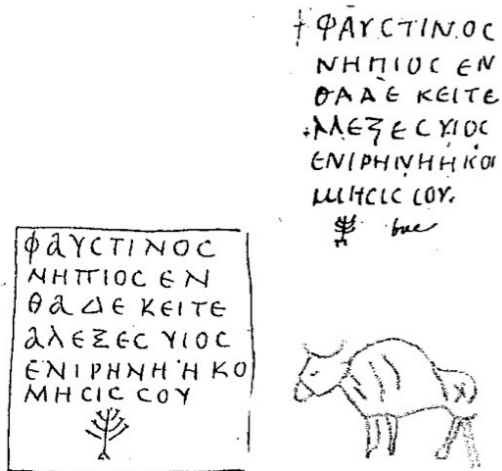 ΦΑΥCΤΙΝΟC
ΝΗΠΙΟC ΕΝ
ΘΑΔΕ ΚΕΙΤΕ
ΑΛΕΞΕC ΥΙΟC
ΕΝΙΡΗΝΗ Η ΚΟ
ΜΗCΙC CΟΥ
† ΦΑΥCΤΙΝΟC
ΝΗΠΙΟC ΕΝ
ΘΑΔΕ ΚΕΙΤΕ
ΑΛΕΞΕC ΥΙΟC
ΕΝΙΡΗΝΗ Η ΚΟΙ
ΜΗCΙC CΟΥ.